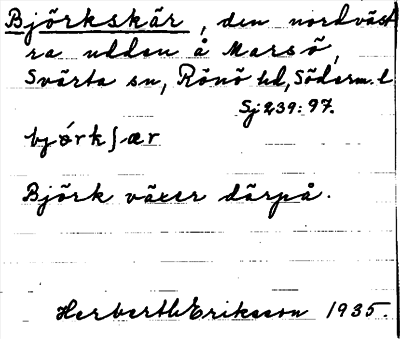 Björkskär, den nordväst
ra udden å Marsö,
Svärta sn, Rönö hd, Söderm. l
Sj 239: 97.
bjö́rkʃær
Björk växer därpå.
Herbert Eriksson 1935.